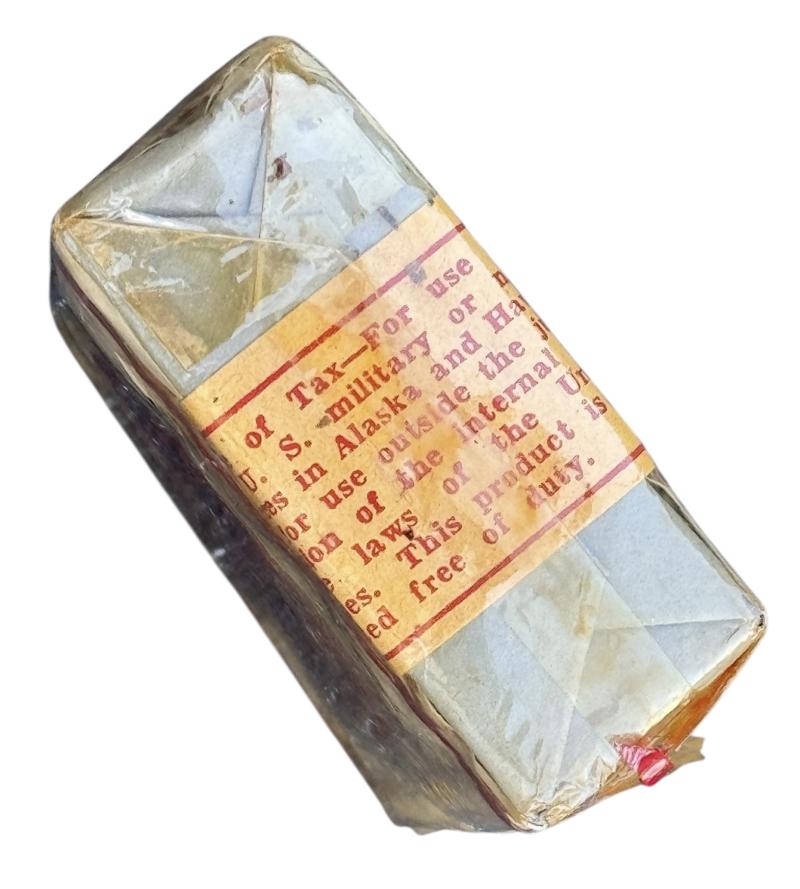 of Tax—For use
U. S. military or
in Alaska and
use outside the
of the internal
laws of the
This product is
free of duty.